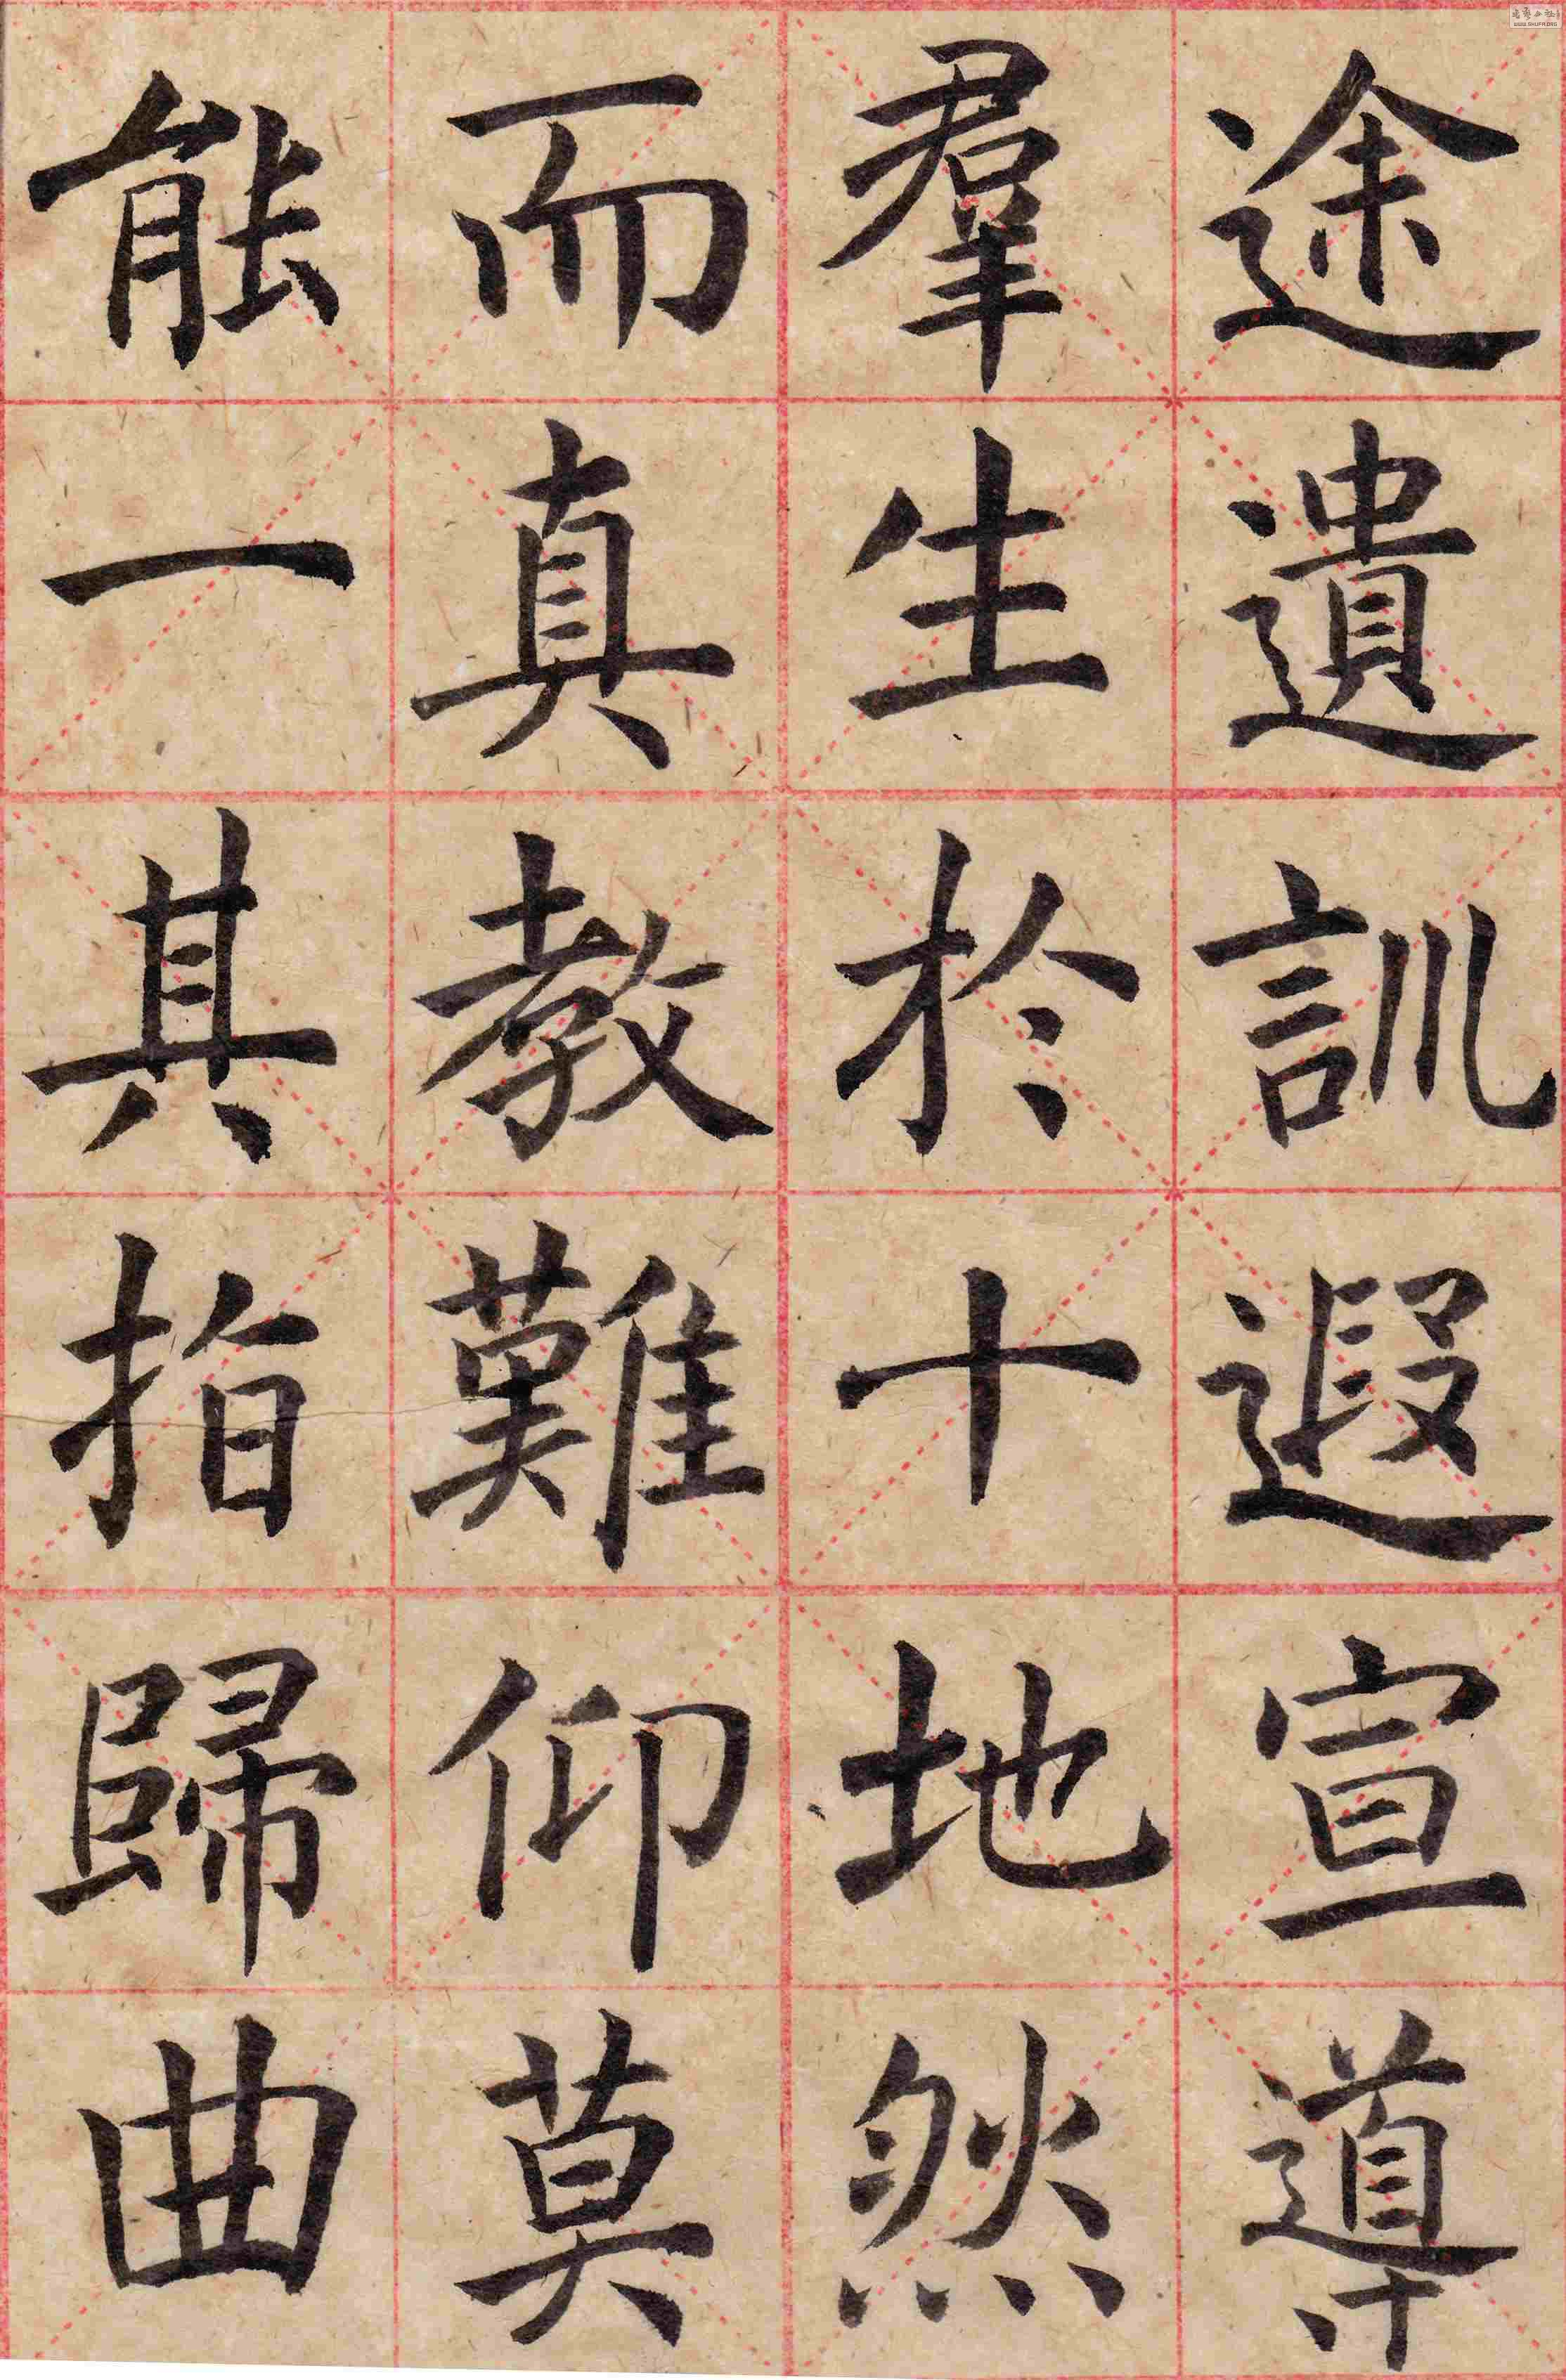 途遺訓遐宣導
羣生於十地然
而真教難仰莫
能一其指歸曲